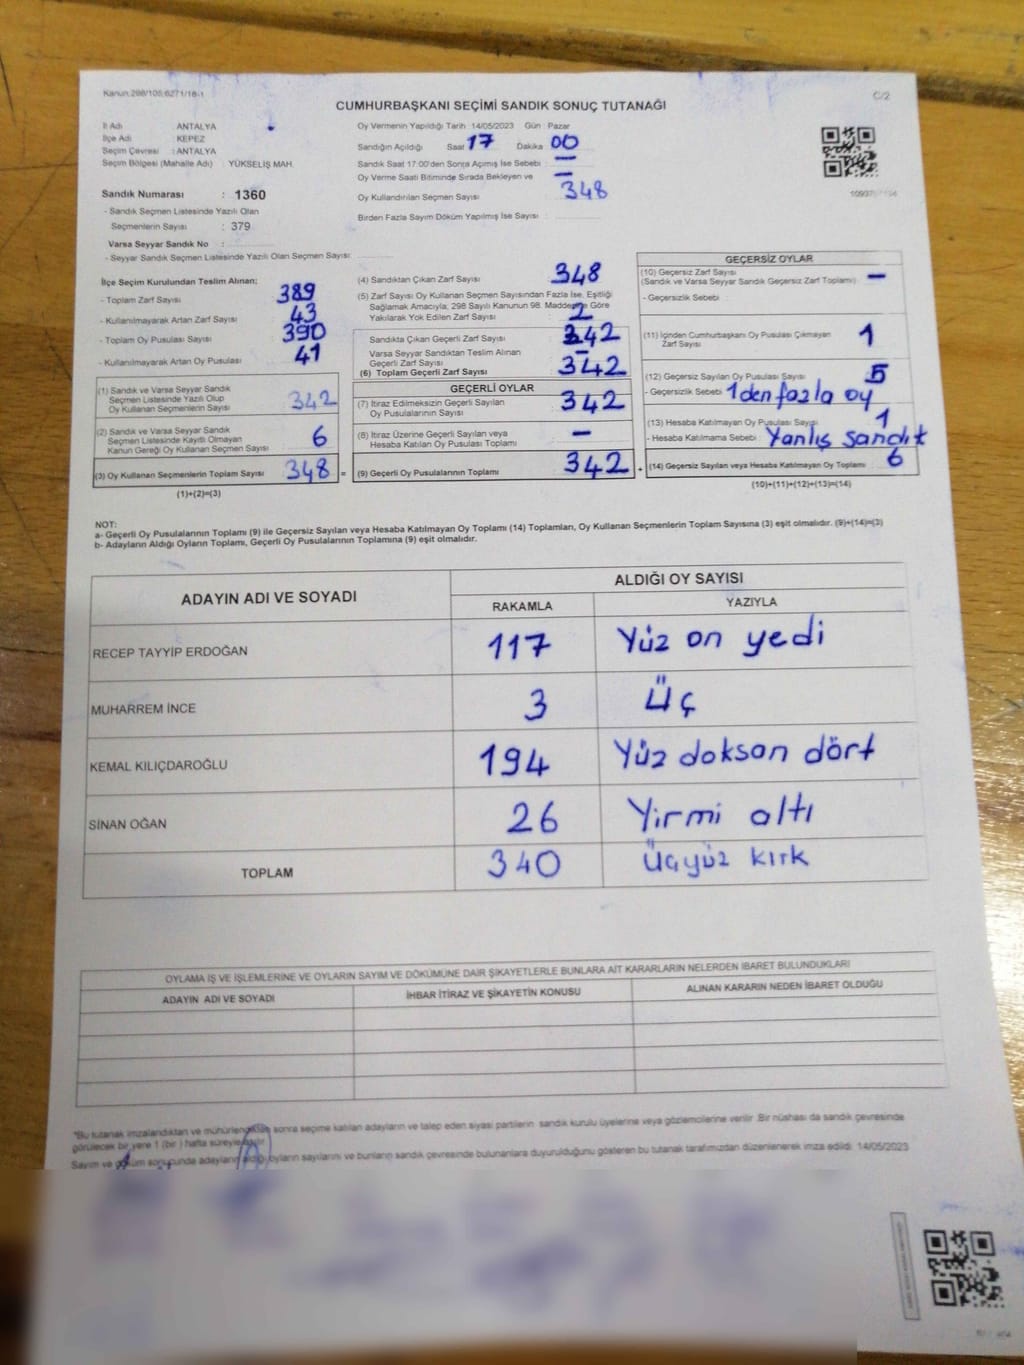 Kanun:298/105;6271/18-1
C/2
CUMHURBAŞKANI SEÇİMİ SANDIK SONUÇ TUTANAĞI
İl Adı ANTALYA
İlçe Adı KEPEZ
Seçim Çevresi : ANTALYA
Seçim Bölgesi (Mahalle Adı) : YÜKSELİŞ MAH.
Oy Vermenin Yapıldığı Tarih 14/05/2023 Gün : Pazar
Sandığın Açıldığı Saat 17 Dakika 00
Sandık Saat 17:00'den Sonra Açımış İse Sebebi : —
Oy Verme Saati Bitiminde Sırada Bekleyen ve —
Oy Kullandırılan Seçmen Sayısı 348
Birden Fazla Sayım Döküm Yapılmış İse Sayısı :
Sandık Numarası : 1360
- Sandık Seçmen Listesinde Yazılı Olan
Seçmenlerin Sayısı : 379
Varsa Seyyar Sandık No :
- Seyyar Sandık Seçmen Listesinde Yazılı Olan Seçmen Sayısı
İlçe Seçim Kurulundan Teslim Alınan;
- Toplam Zarf Sayısı 389
- Kullanılmayarak Artan Zarf Sayısı : 43
- Toplam Oy Pusulası Sayısı 390
- Kullanılmayarak Artan Oy Pusulası 41
(1) Sandık ve Varsa Seyyar Sandık
Seçmen Listesinde Yazılı Olup
Oy Kullanan Seçmenlerin Sayısı 342
(2) Sandık ve Varsa Seyyar Sandık
Seçmen Listesinde Kayıtlı Olmayan
Kanun Gereği Oy Kullanan Seçmen Sayısı 6
(3) Oy Kullanan Seçmenlerin Toplam Sayısı 348 =
(1)+(2)=(3)
(4) Sandıktan Çıkan Zarf Sayısı 348
(5) Zarf Sayısı Oy Kullanan Seçmen Sayısından Fazla İse, Eşitliği
Sağlamak Amacıyla, 298 Sayılı Kanunun 98. Maddesine Göre
Yakılarak Yok Edilen Zarf Sayısı : 2
Sandıkta Çıkan Geçerli Zarf Sayısı 342
Varsa Seyyar Sandıktan Teslim Alınan
Geçerli Zarf Sayısı —
(6) Toplam Geçerli Zarf Sayısı 342
GEÇERLİ OYLAR
(7) İtiraz Edilmeksizin Geçerli Sayılan
Oy Pusulalarının Sayısı 342
(8) İtiraz Üzerine Geçerli Sayılan veya
Hesaba Katılan Oy Pusulası Toplamı —
(9) Geçerli Oy Pusulalarının Toplamı 342 +
GEÇERSİZ OYLAR
(10) Geçersiz Zarf Sayısı
(Sandık ve Varsa Seyyar Sandık Geçersiz Zarf Toplamı) : —
- Geçersizlik Sebebi :
(11) İçinden Cumhurbaşkanı Oy Pusulası Çıkmayan
Zarf Sayısı 1
(12) Geçersiz Sayılan Oy Pusulası Sayısı 5
- Geçersizlik Sebebi 1den fazla oy
(13) Hesaba Katılmayan Oy Pusulası Sayısı 1
- Hesaba Katılmama Sebebi : Yanlış sandık
(14) Geçersiz Sayılan veya Hesaba Katılmayan Oy Toplamı 6
(10)+(11)+(12)+(13)=(14)
NOT:
a- Geçerli Oy Pusulalarının Toplamı (9) ile Geçersiz Sayılan veya Hesaba Katılmayan Oy Toplamı (14) Toplamları, Oy Kullanan Seçmenlerin Toplam Sayısına (3) eşit olmalıdır. (9)+(14)=(3)
b- Adayların Aldığı Oyların Toplamı, Geçerli Oy Pusulalarının Toplamına (9) eşit olmalıdır.
ADAYIN ADI VE SOYADI
ALDIĞI OY SAYISI
RAKAMLA YAZIYLA
RECEP TAYYİP ERDOĞAN 117 Yüz on yedi
MUHARREM İNCE 3 Üç
KEMAL KILIÇDAROĞLU 194 Yüz doksan dört
SİNAN OĞAN 26 Yirmi altı
TOPLAM 340 Üçyüz kırk
OYLAMA İŞ VE İŞLEMLERİNE VE OYLARIN SAYIM VE DÖKÜMÜNE DAİR ŞİKAYETLERLE BUNLARA AİT KARARLARIN NELERDEN İBARET BULUNDUKLARI
ADAYIN ADI VE SOYADI İHBAR İTİRAZ VE ŞİKAYETİN KONUSU ALINAN KARARIN NEDEN İBARET OLDUĞU
*Bu tutanak imzalandıktan ve mühürlendikten sonra seçime katılan adayların ve talep eden siyasi partilerin sandık kurulu üyelerine veya gözlemcilerine verilir. Bir nüshası da sandık çevresinde
görülecek bir yere 1 (bir) hafta süreyle asılır.
Sayım ve döküm sonucunda adayların aldığı oyların sayılarını ve bunların sandık çevresinde bulunanlara duyurulduğunu gösteren bu tutanak tarafımızdan düzenlenerek imza edildi. 14/05/2023